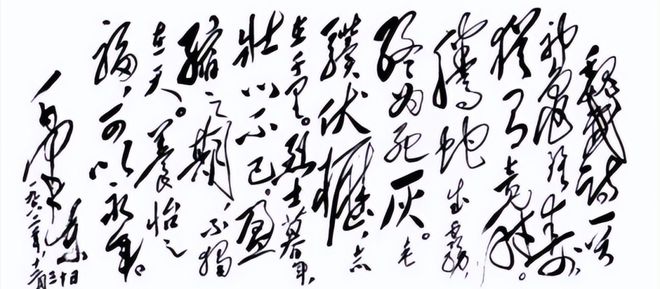 魏武诗一首
神龟虽寿，
犹有竟时。
腾蛇成雾，
终为死灰。老
骥伏枥，志
在千里。烈士暮年，
壮心不已。盈
缩之期，不独
在天。养怡之
福，可以永年。
毛泽东
一九六二年